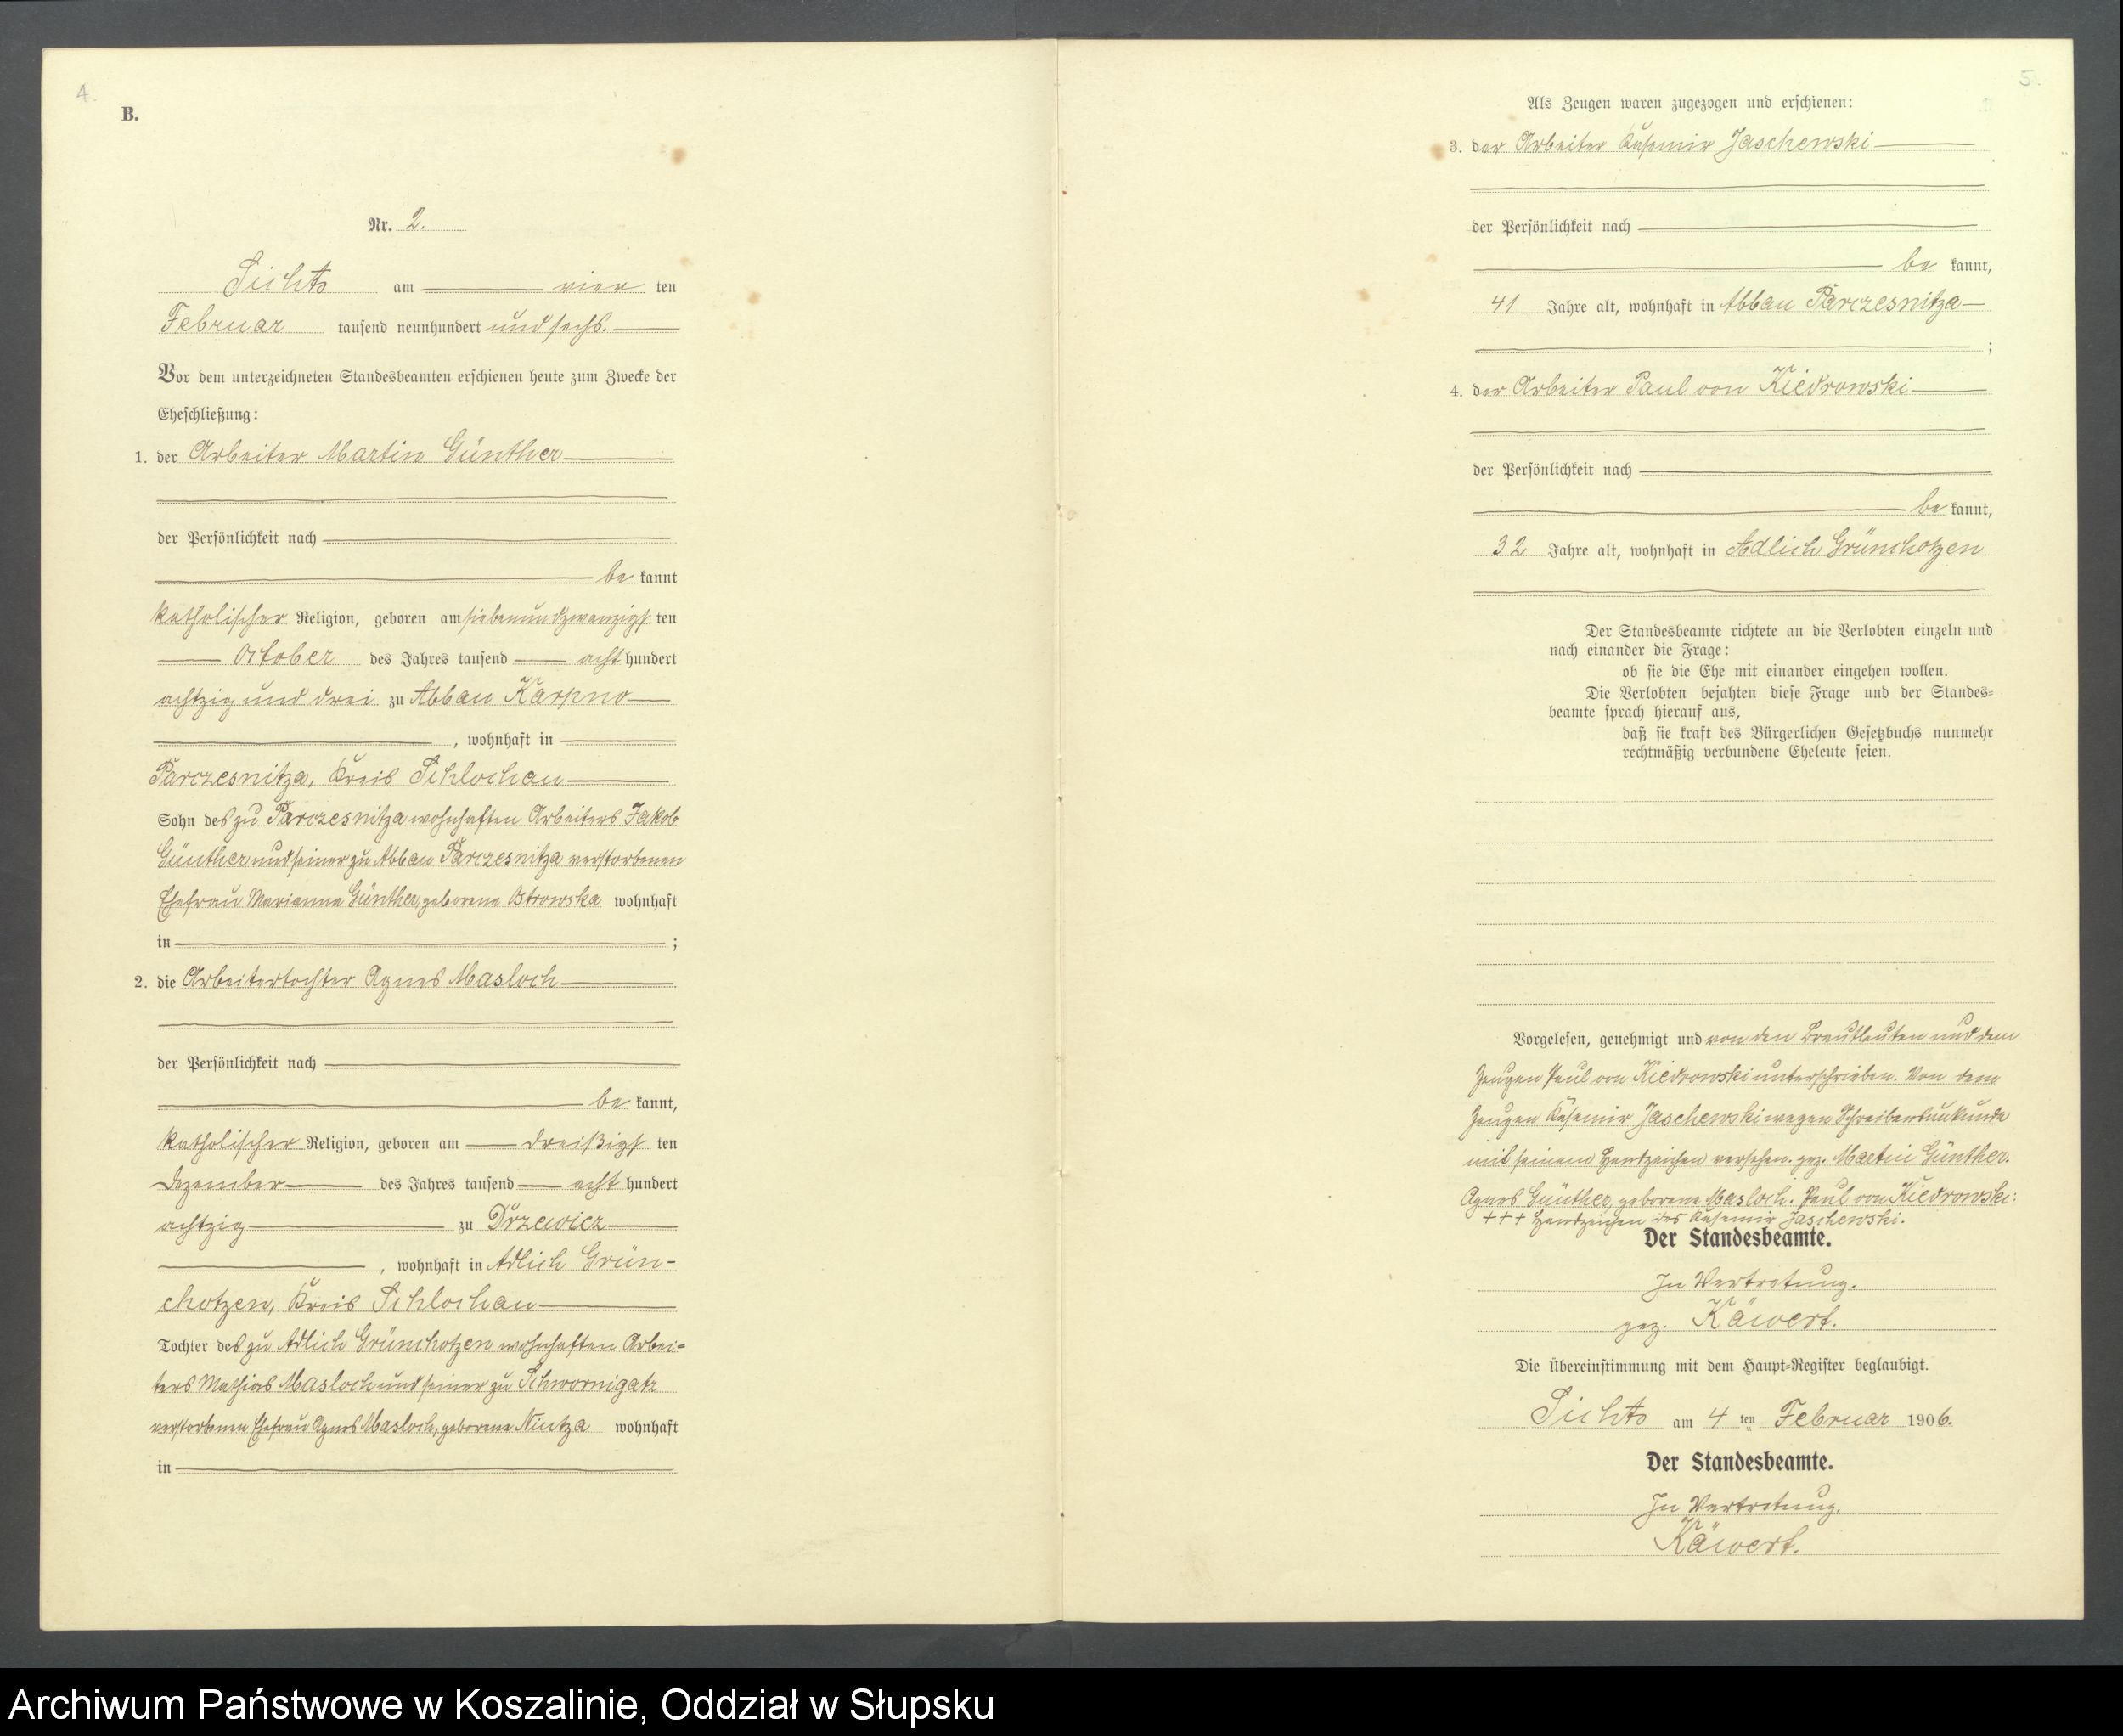 4.
B.
Nr. 2.
Sichts am vier ten
Februar tausend neunhundert und sechs.
Vor dem unterzeichneten Standesbeamten erschienen heute zum Zwecke der
Eheschließung:
1. der Arbeiter Martin Günther
der Persönlichkeit nach
be kannt
katholischer Religion, geboren am siebenundzwanzigs ten
October des Jahres tausend acht hundert
achtzig und drei zu Abbau Karpno
, wohnhaft in
Parczesnitza, Kreis Schlochau
Sohn des zu Parczesnitza wohnhaften Arbeiters Jakob
Günther und seiner zu Abbau Parczesnitza verstorbenen
Ehefrau Marianna Günther, geborene Ostrowska wohnhaft
in ;
2. die Arbeitertochter Agnes Masloch
der Persönlichkeit nach
be kannt,
katholischer Religion, geboren am dreißigs ten
Dezember des Jahres tausend acht hundert
achtzig zu Drzewicz
, wohnhaft in Adlich Grün-
chotzen, Kreis Schlochau
Tochter des zu Adlich Grünchotzen wohnhaften Arbei-
ters Mathias Masloch und seiner zu Schwornigatz
verstorbenen Ehefrau Agnes Masloch, geborene Nintza wohnhaft
in
5.
Als Zeugen waren zugezogen und erschienen:
3. der Arbeiter Kasemir Jaschewski
der Persönlichkeit nach
be kannt,
41 Jahre alt, wohnhaft in Abbau Parczesnitza
;
4. der Arbeiter Paul von Kiedrowski
der Persönlichkeit nach
be kannt,
32 Jahre alt, wohnhaft in Adlich Grünchotzen
Der Standesbeamte richtete an die Verlobten einzeln und
nach einander die Frage:
ob sie die Ehe mit einander eingehen wollen.
Die Verlobten bejahten diese Frage und der Standes-
beamte sprach hierauf aus,
daß sie kraft des Bürgerlichen Gesetzbuchs nunmehr
rechtmäßig verbundene Eheleute seien.
Vorgelesen, genehmigt und von den Brautleuten und dem
Zeugen Paul von Kiedrowski unterschrieben. Von dem
Zeugen Kasemir Jaschewski wegen Schreibensunkunde
mit seinem Handzeichen versehen. gez. Martin Günther.
Agnes Günther, geborene Masloch. Paul von Kiedrowski:
+++ Handzeichen des Kasemir Jaschewski.
Der Standesbeamte.
In Vertretung.
gez. Käwert.
Die Übereinstimmung mit dem Haupt-Register beglaubigt.
Sichts am 4 ten Februar 1906.
Der Standesbeamte.
In Vertretung.
Käwert.
Archiwum Państwowe w Koszalinie, Oddział w Słupsku